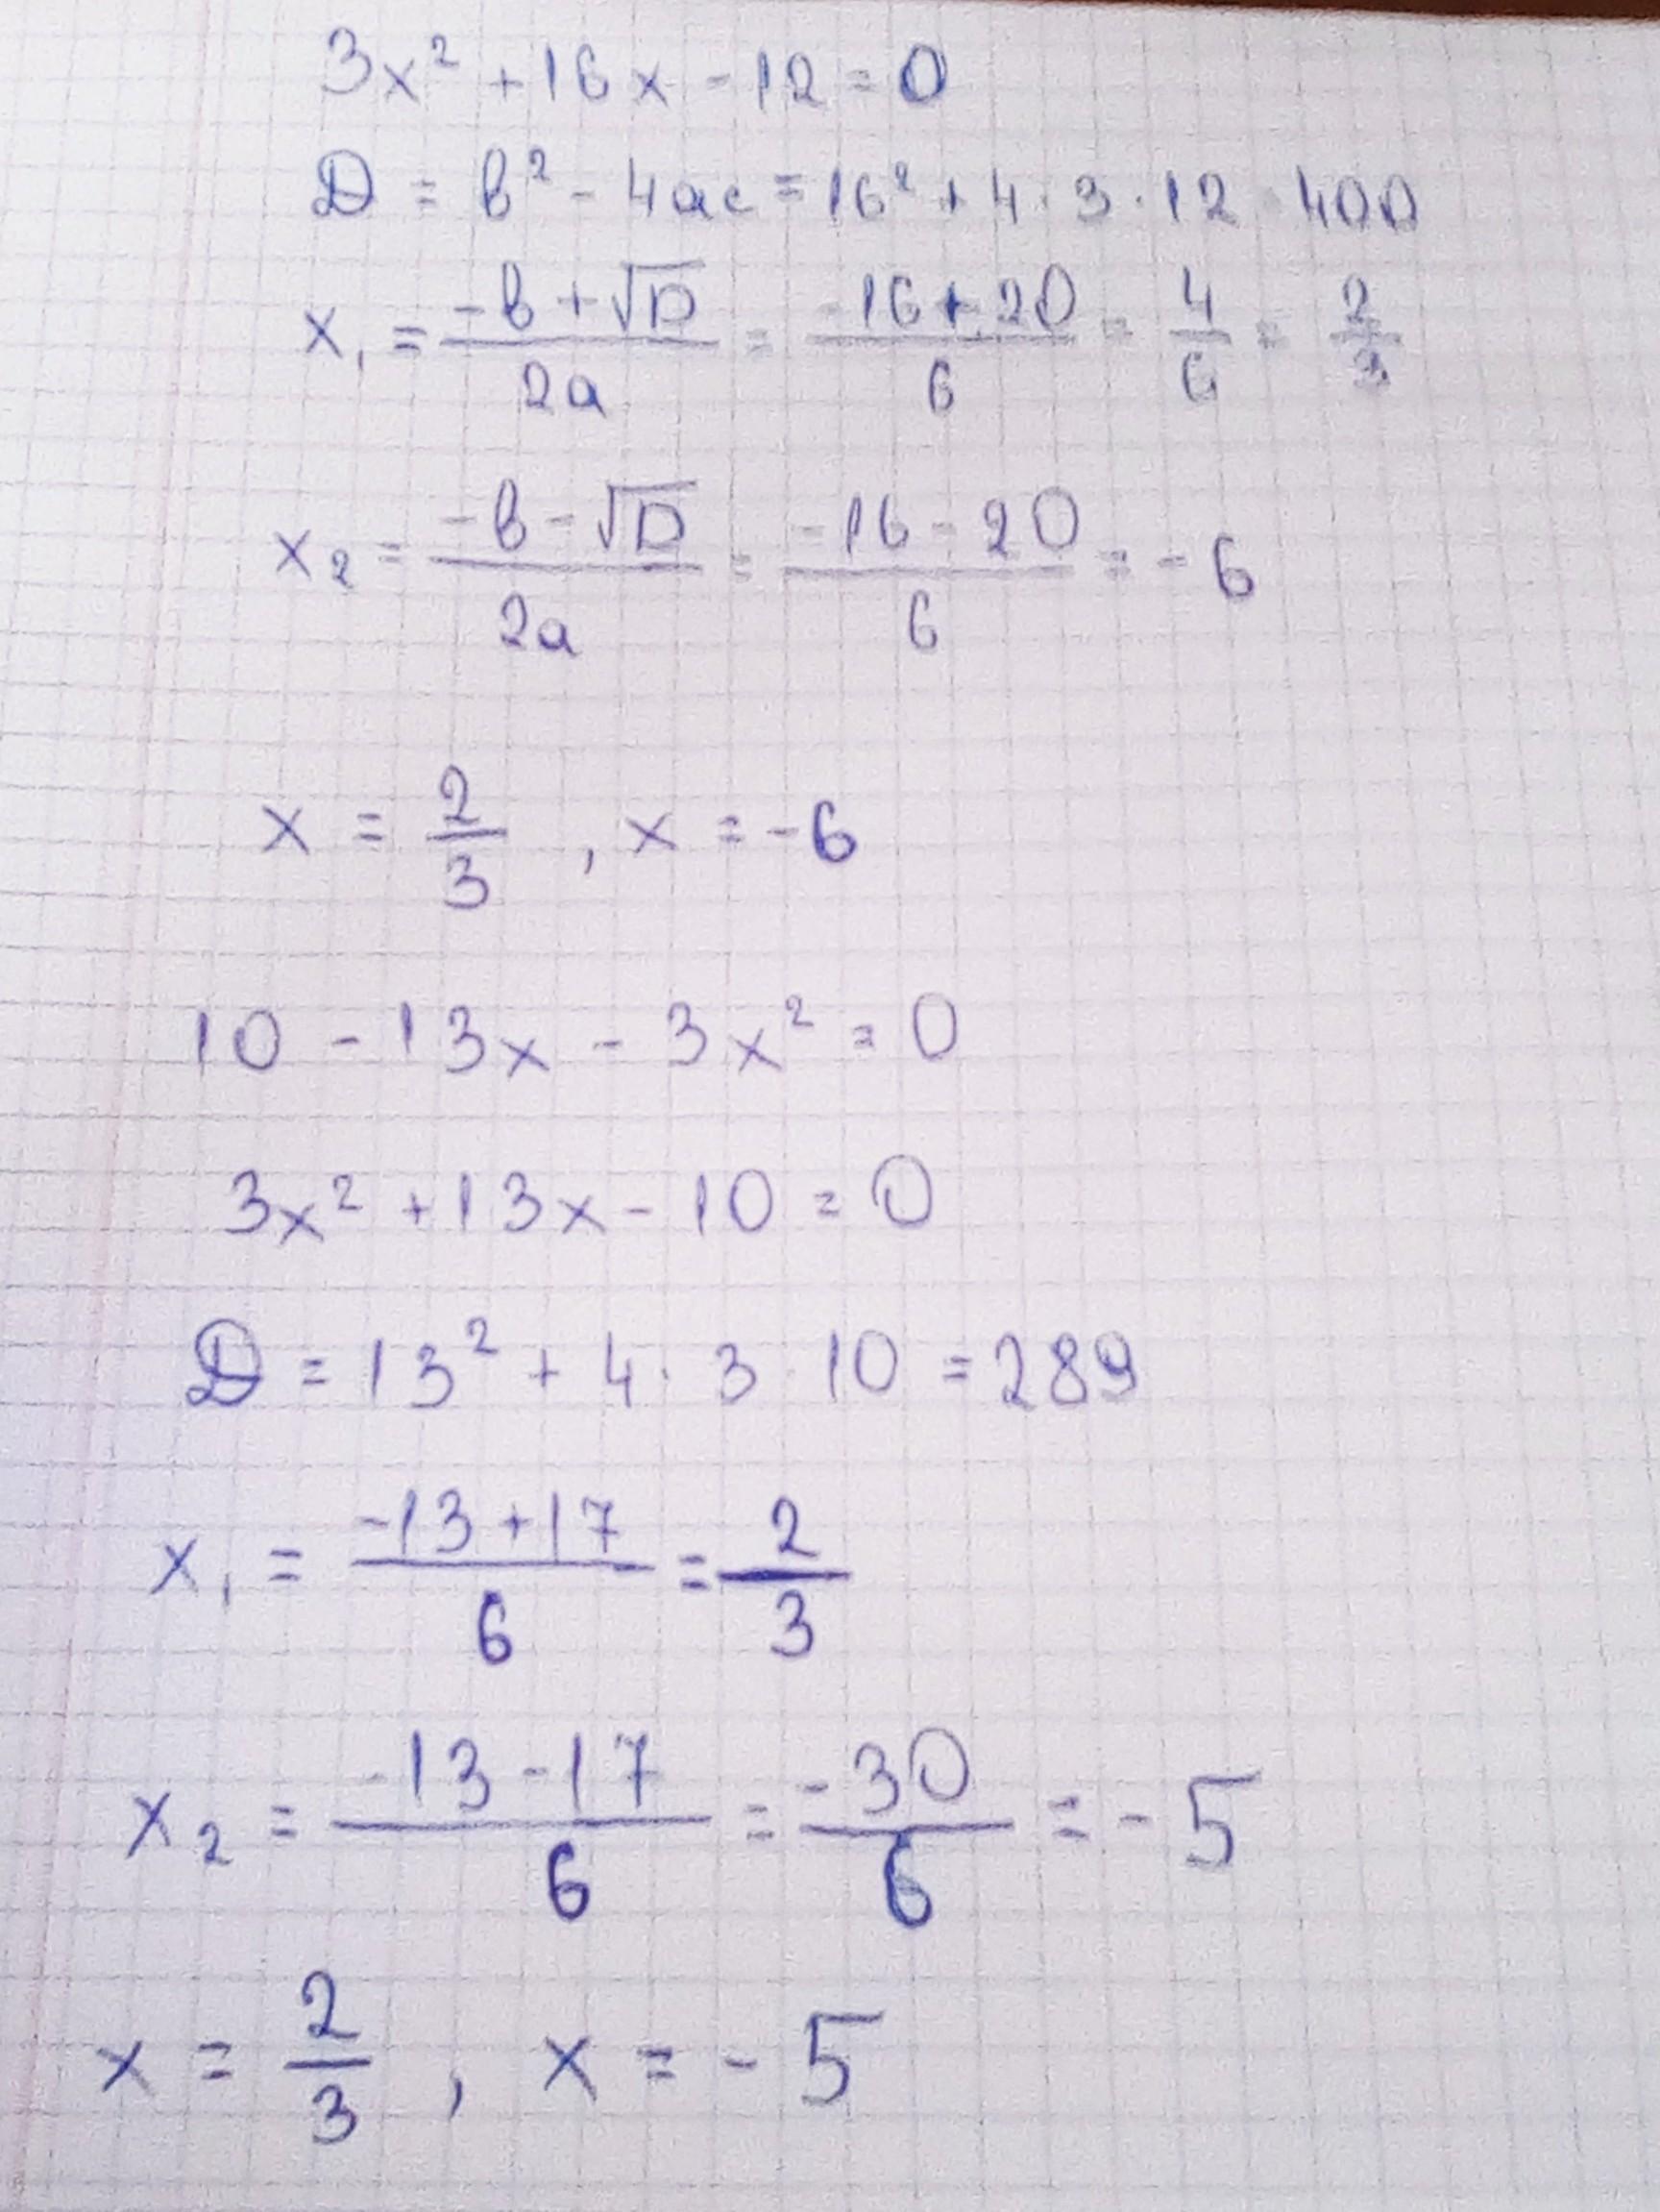 3x² + 16x - 12 = 0
D = b² - 4ac = 16² + 4 · 3 · 12 = 400
x₁ = (-b + √D)/(2a) = (-16 + 20)/6 = 4/6 = 2/3
x₂ = (-b - √D)/(2a) = (-16 - 20)/6 = -6
x = 2/3 , x = -6
10 - 13x - 3x² = 0
3x² + 13x - 10 = 0
D = 13² + 4 · 3 · 10 = 289
x₁ = (-13 + 17)/6 = 2/3
x₂ = (-13 - 17)/6 = -30/6 = -5
x = 2/3 , x = -5